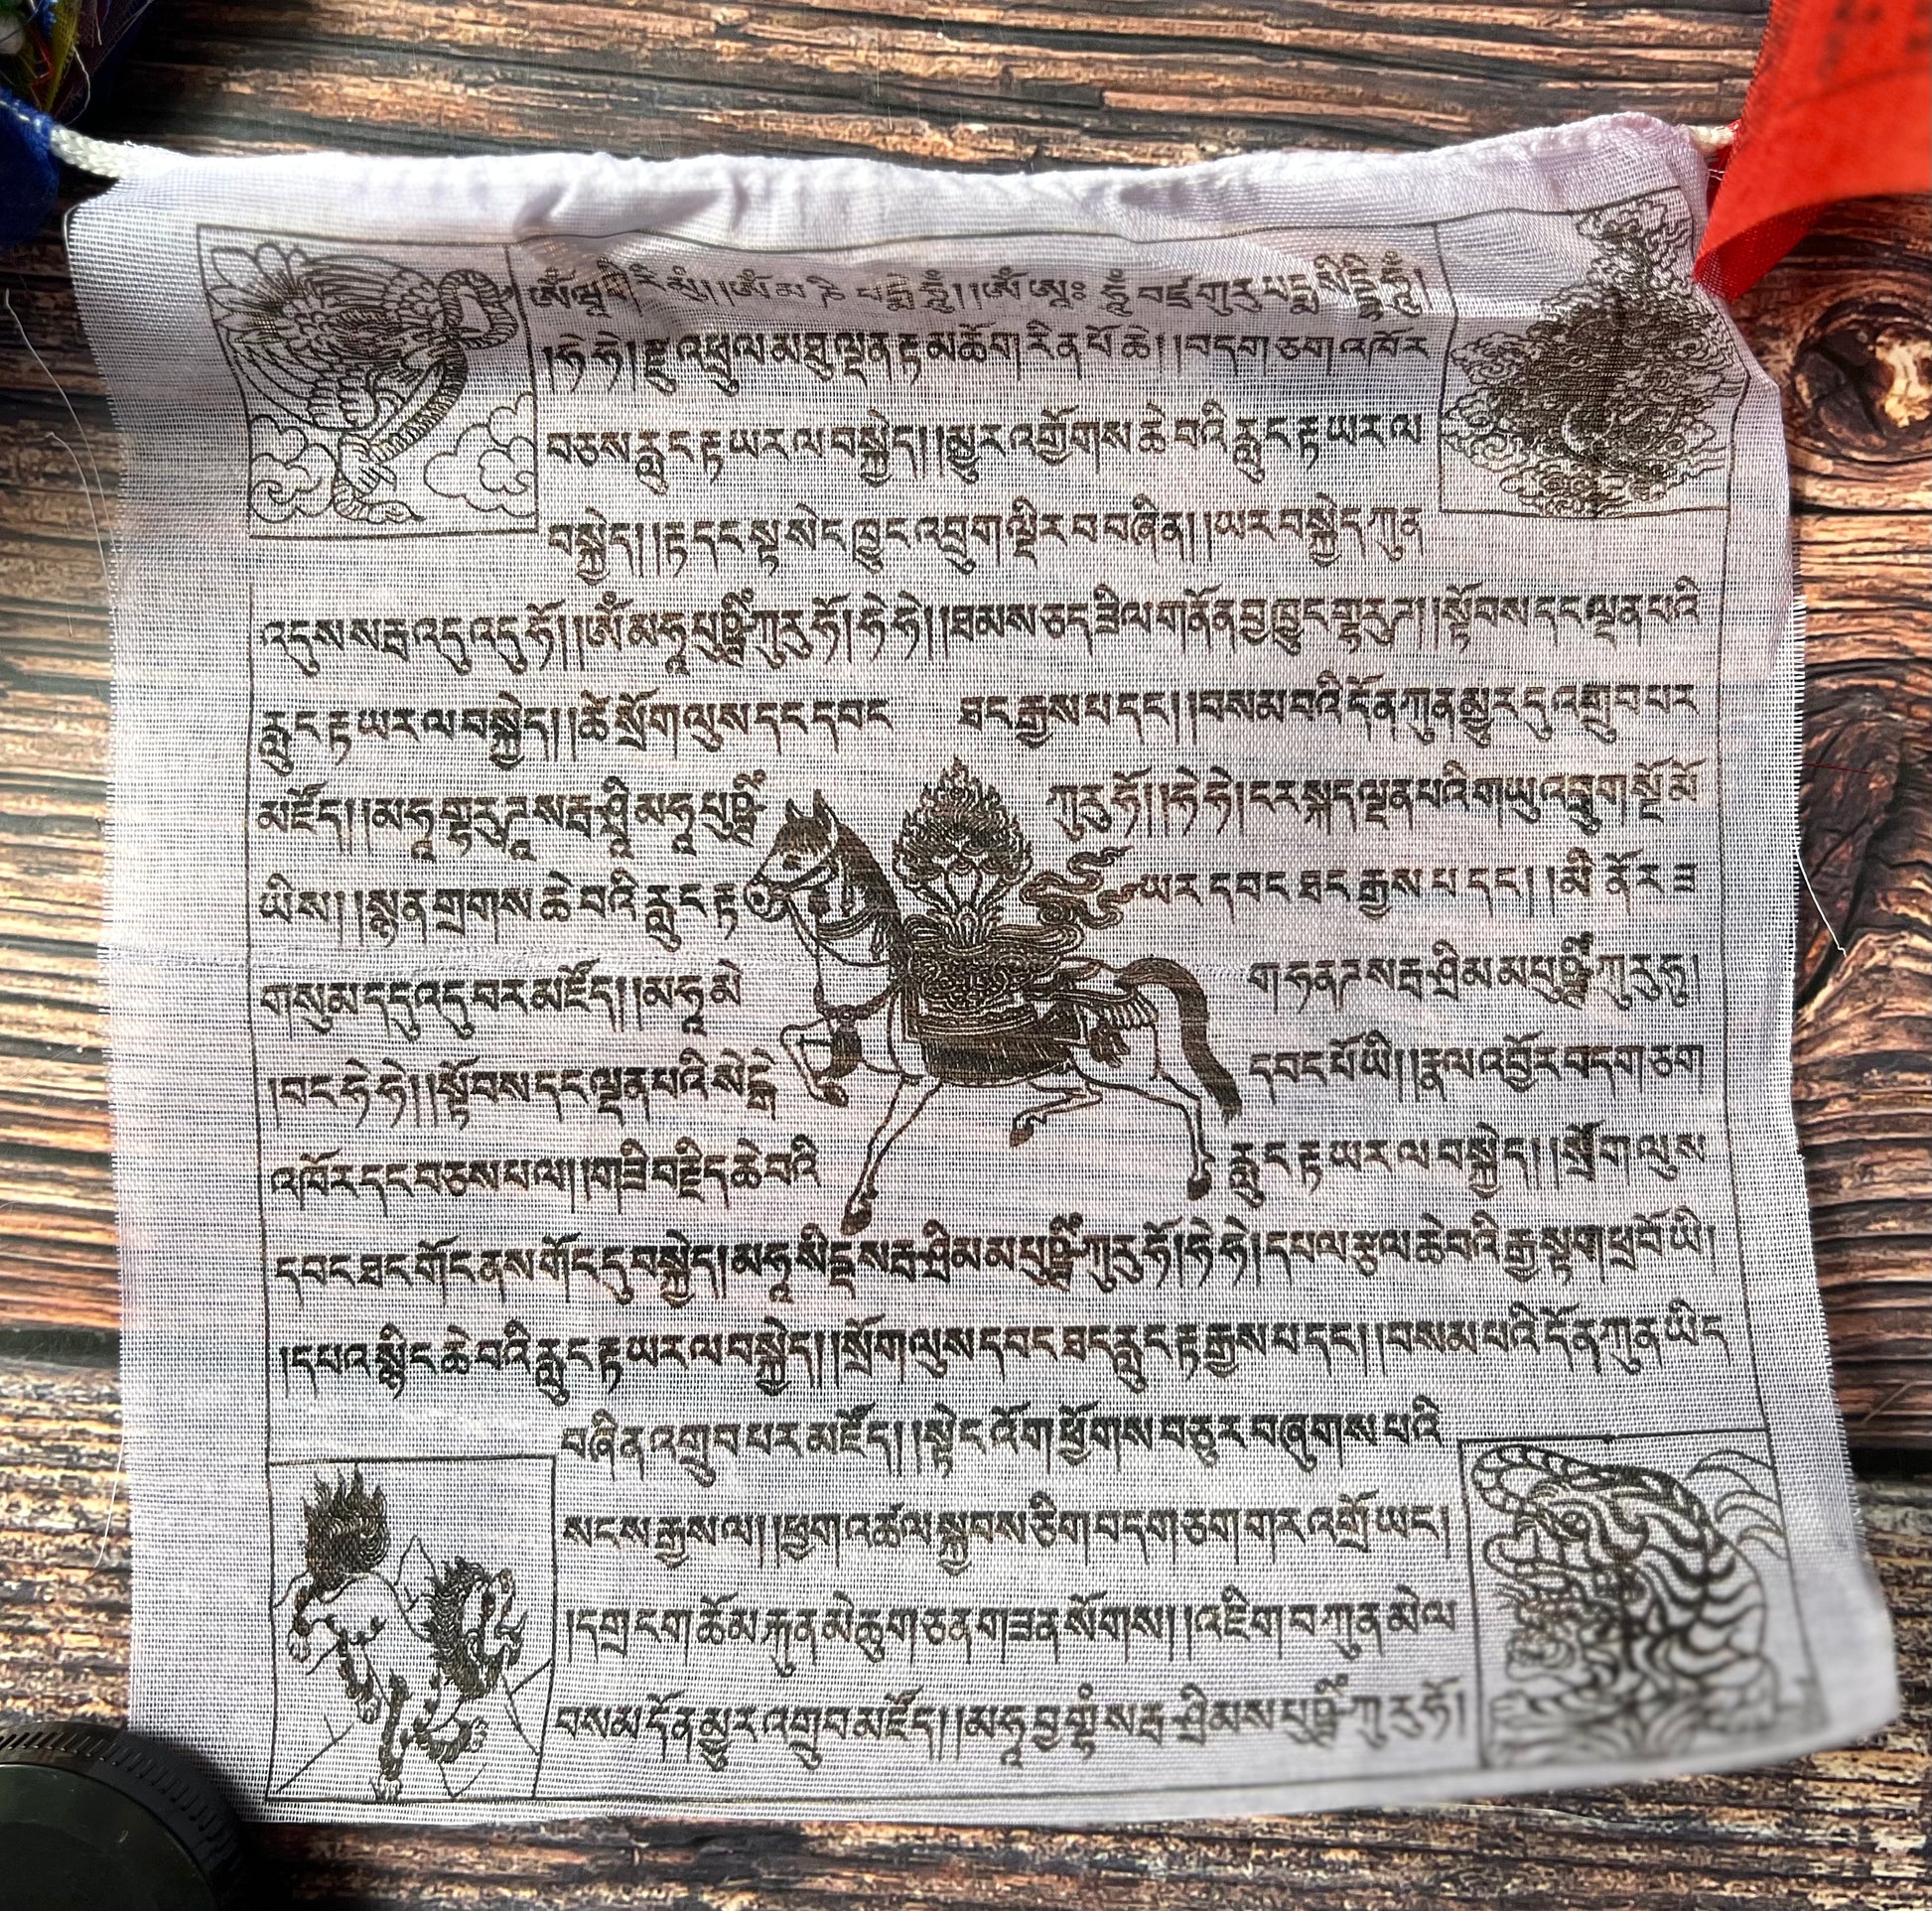 ༀ་ཝཱ་གཱི་ཤྭ་རི་མུཾ། །ༀ་མ་ཎི་པདྨེ་ཧཱུྃ། །ༀ་ཨཱཿ་ཧཱུྃ་བཛྲ་གུ་རུ་པདྨ་སིདྡྷི་ཧཱུྃ།
།ཧེ་ཧེ། རྫུ་འཕྲུལ་མཐུ་ལྡན་རྟ་མཆོག་རིན་པོ་ཆེ། །བདག་ཅག་འཁོར་
བཅས་རླུང་རྟ་ཡར་ལ་བསྐྱེད། །མྱུར་འགྲོགས་ཆེ་བའི་རླུང་རྟ་ཡར་ལ་
བསྐྱེད། །རྟ་དང་སྟ་སེང་ཁྱུང་འབྲུག་ལྡིར་བ་བཞིན། །ཡར་བསྐྱེད་ཀུན་
འདུས་སརྦ་འདུ་འདུ་ཧོ། །ༀ་མཧཱ་པུཎྜཾ་ཀུ་རུ་ཧོ། ཧེ་ཧེ། །ཐམས་ཅད་ཟིལ་གནོན་བྱ་ཁྱུང་གྷ་རུ་ཌ། །སྟོབས་དང་ལྡན་པའི་
རླུང་རྟ་ཡར་ལ་བསྐྱེད། །ཚེ་སྲོག་ལུས་དང་དབང་ ཐང་རྒྱས་པ་དང་། །བསམ་བའི་དོན་ཀུན་མྱུར་དུ་འགྲུབ་པར་
མཛོད། །མཧཱ་གྷ་རུ་ཌཱ་སརྦ་ཤྲཱི་མཧཱ་པུཎྜཾ་ ཀུ་རུ་ཧོ། །ཧེ་ཧེ། ངར་སྐད་ལྡན་པའི་གཡུ་འབྲུག་སྔོ་མོ་
ཡིས། །སྙན་གྲགས་ཆེ་བའི་རླུང་རྟ་ ཡར་དབང་ཐང་རྒྱས་པ་དང་། །མི་ནོར་ཟ
གསུམ་དདུ་འདུ་བར་མཛོད། །མཧཱ་མེ་ ག་ཧ་ནཌ་སརྦ་ཤྲི་མ་མ་པུཎྜཾ་ཀུ་རུ་ཧ།
།བང་ཧེ་ཧེ། །སྟོབས་དང་ལྡན་པའི་སེངྒེ་ དབང་པོ་ཡི། །རྣལ་འབྱོར་བདག་ཅག་
འཁོར་དང་བཅས་པ་ལ། །གཟི་བརྗིད་ཆེ་བའི་ རླུང་རྟ་ཡར་ལ་བསྐྱེད། །སྲོག་ལུས་
དབང་ཐང་གོང་ནས་གོང་དུ་བསྐྱེད། མཧཱ་སིདྡ་སརྦ་ཤྲི་མ་མ་པུཎྜཾ་ཀུ་རུ་ཧོ། ཧེ་ཧེ། དཔལ་རྩལ་ཆེ་བའི་རྒྱ་སྟག་ཕྲ་བོ་ཡི།
།དཔའ་སྙིང་ཆེ་བའི་རླུང་རྟ་ཡར་ལ་བསྐྱེད། །སྲོག་ལུས་དབང་ཐང་རླུང་རྟ་རྒྱས་པ་དང་། །བསམ་པའི་དོན་ཀུན་ཡིད་
བཞིན་འགྲུབ་པར་མཛོད། །སྟེང་འོག་ཕྱོགས་བཅུར་བཞུགས་པའི་
སངས་རྒྱས་ལ། །ཕྱག་འཚལ་སྐྱབས་ཅིག་བདག་ཅག་གར་འགྲོ་ཡང་།
།དགྲ་ངག་ཆོམ་རྐུན་མེ་ཆུག་ཅན་གཟན་སོགས། །འཇིག་བ་ཀུན་མེལ་
བསམ་དོན་མྱུར་འགྲུབ་མཛོད། །མཧཱ་བྱ་གྷྲཾ་སརྦ་ཤྲི་མ་ས་པུཎྜཾ་ཀུ་རུ་ཧོ།